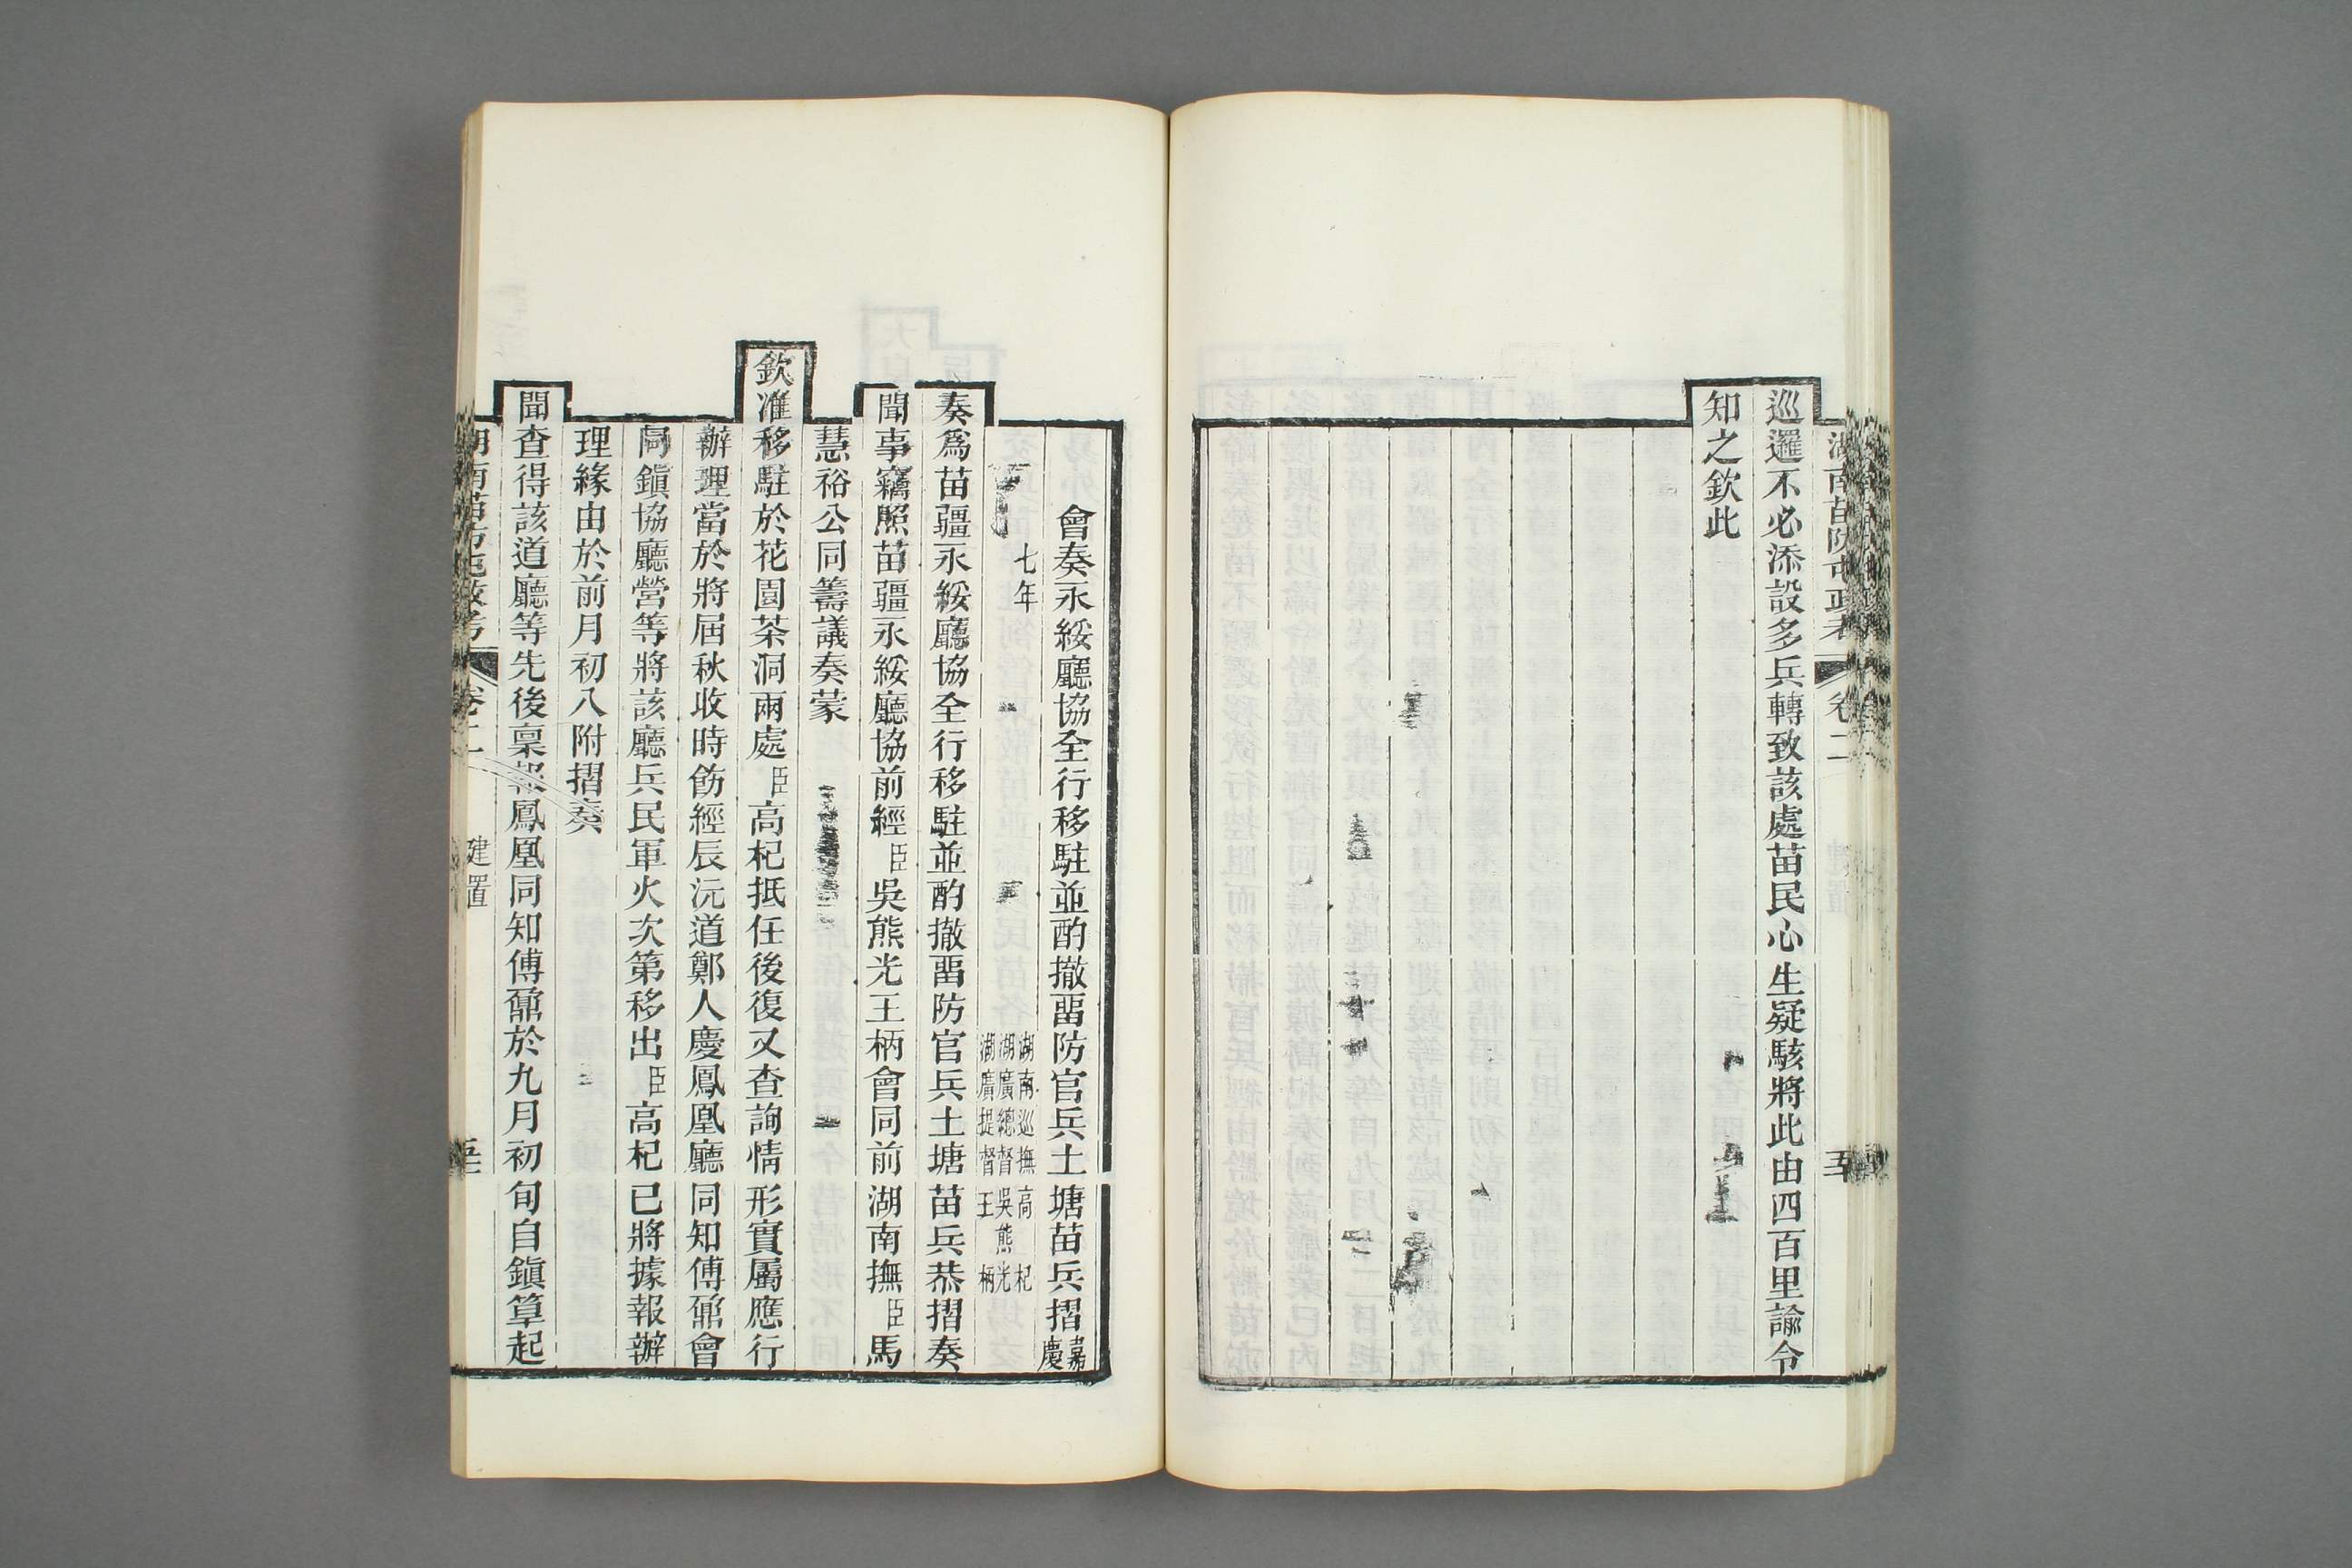 湖南苗防屯政考 卷二
巡邏不必添設多兵轉致該處苗民心生疑駭將此由四百里諭令
知之欽此
會奏永綏廳協全行移駐並酌撤畱防官兵土塘苗兵摺 嘉慶
七年
湖南巡撫高杞
湖廣總督吳熊光
湖廣提督王柄
奏爲苗疆永綏廳協全行移駐並酌撤畱防官兵土塘苗兵恭摺奏
聞事竊照苗疆永綏廳協前經臣吳熊光王柄會同前湖南撫臣馬
慧裕公同籌議奏蒙
欽准移駐於花園茶洞兩處臣高杞抵任後復又查詢情形實屬應行
辦理當於將屆秋收時飭經辰沅道鄭人慶鳳凰廳同知傅鼐會
同鎮協廳營等將該廳兵民軍火次第移出臣高杞已將據報辦
理緣由於前月初八附摺奏
聞查得該道廳等先後稟報鳳凰同知傅鼐於九月初旬自鎮筸起
湖南苗防屯政考 卷二 建置